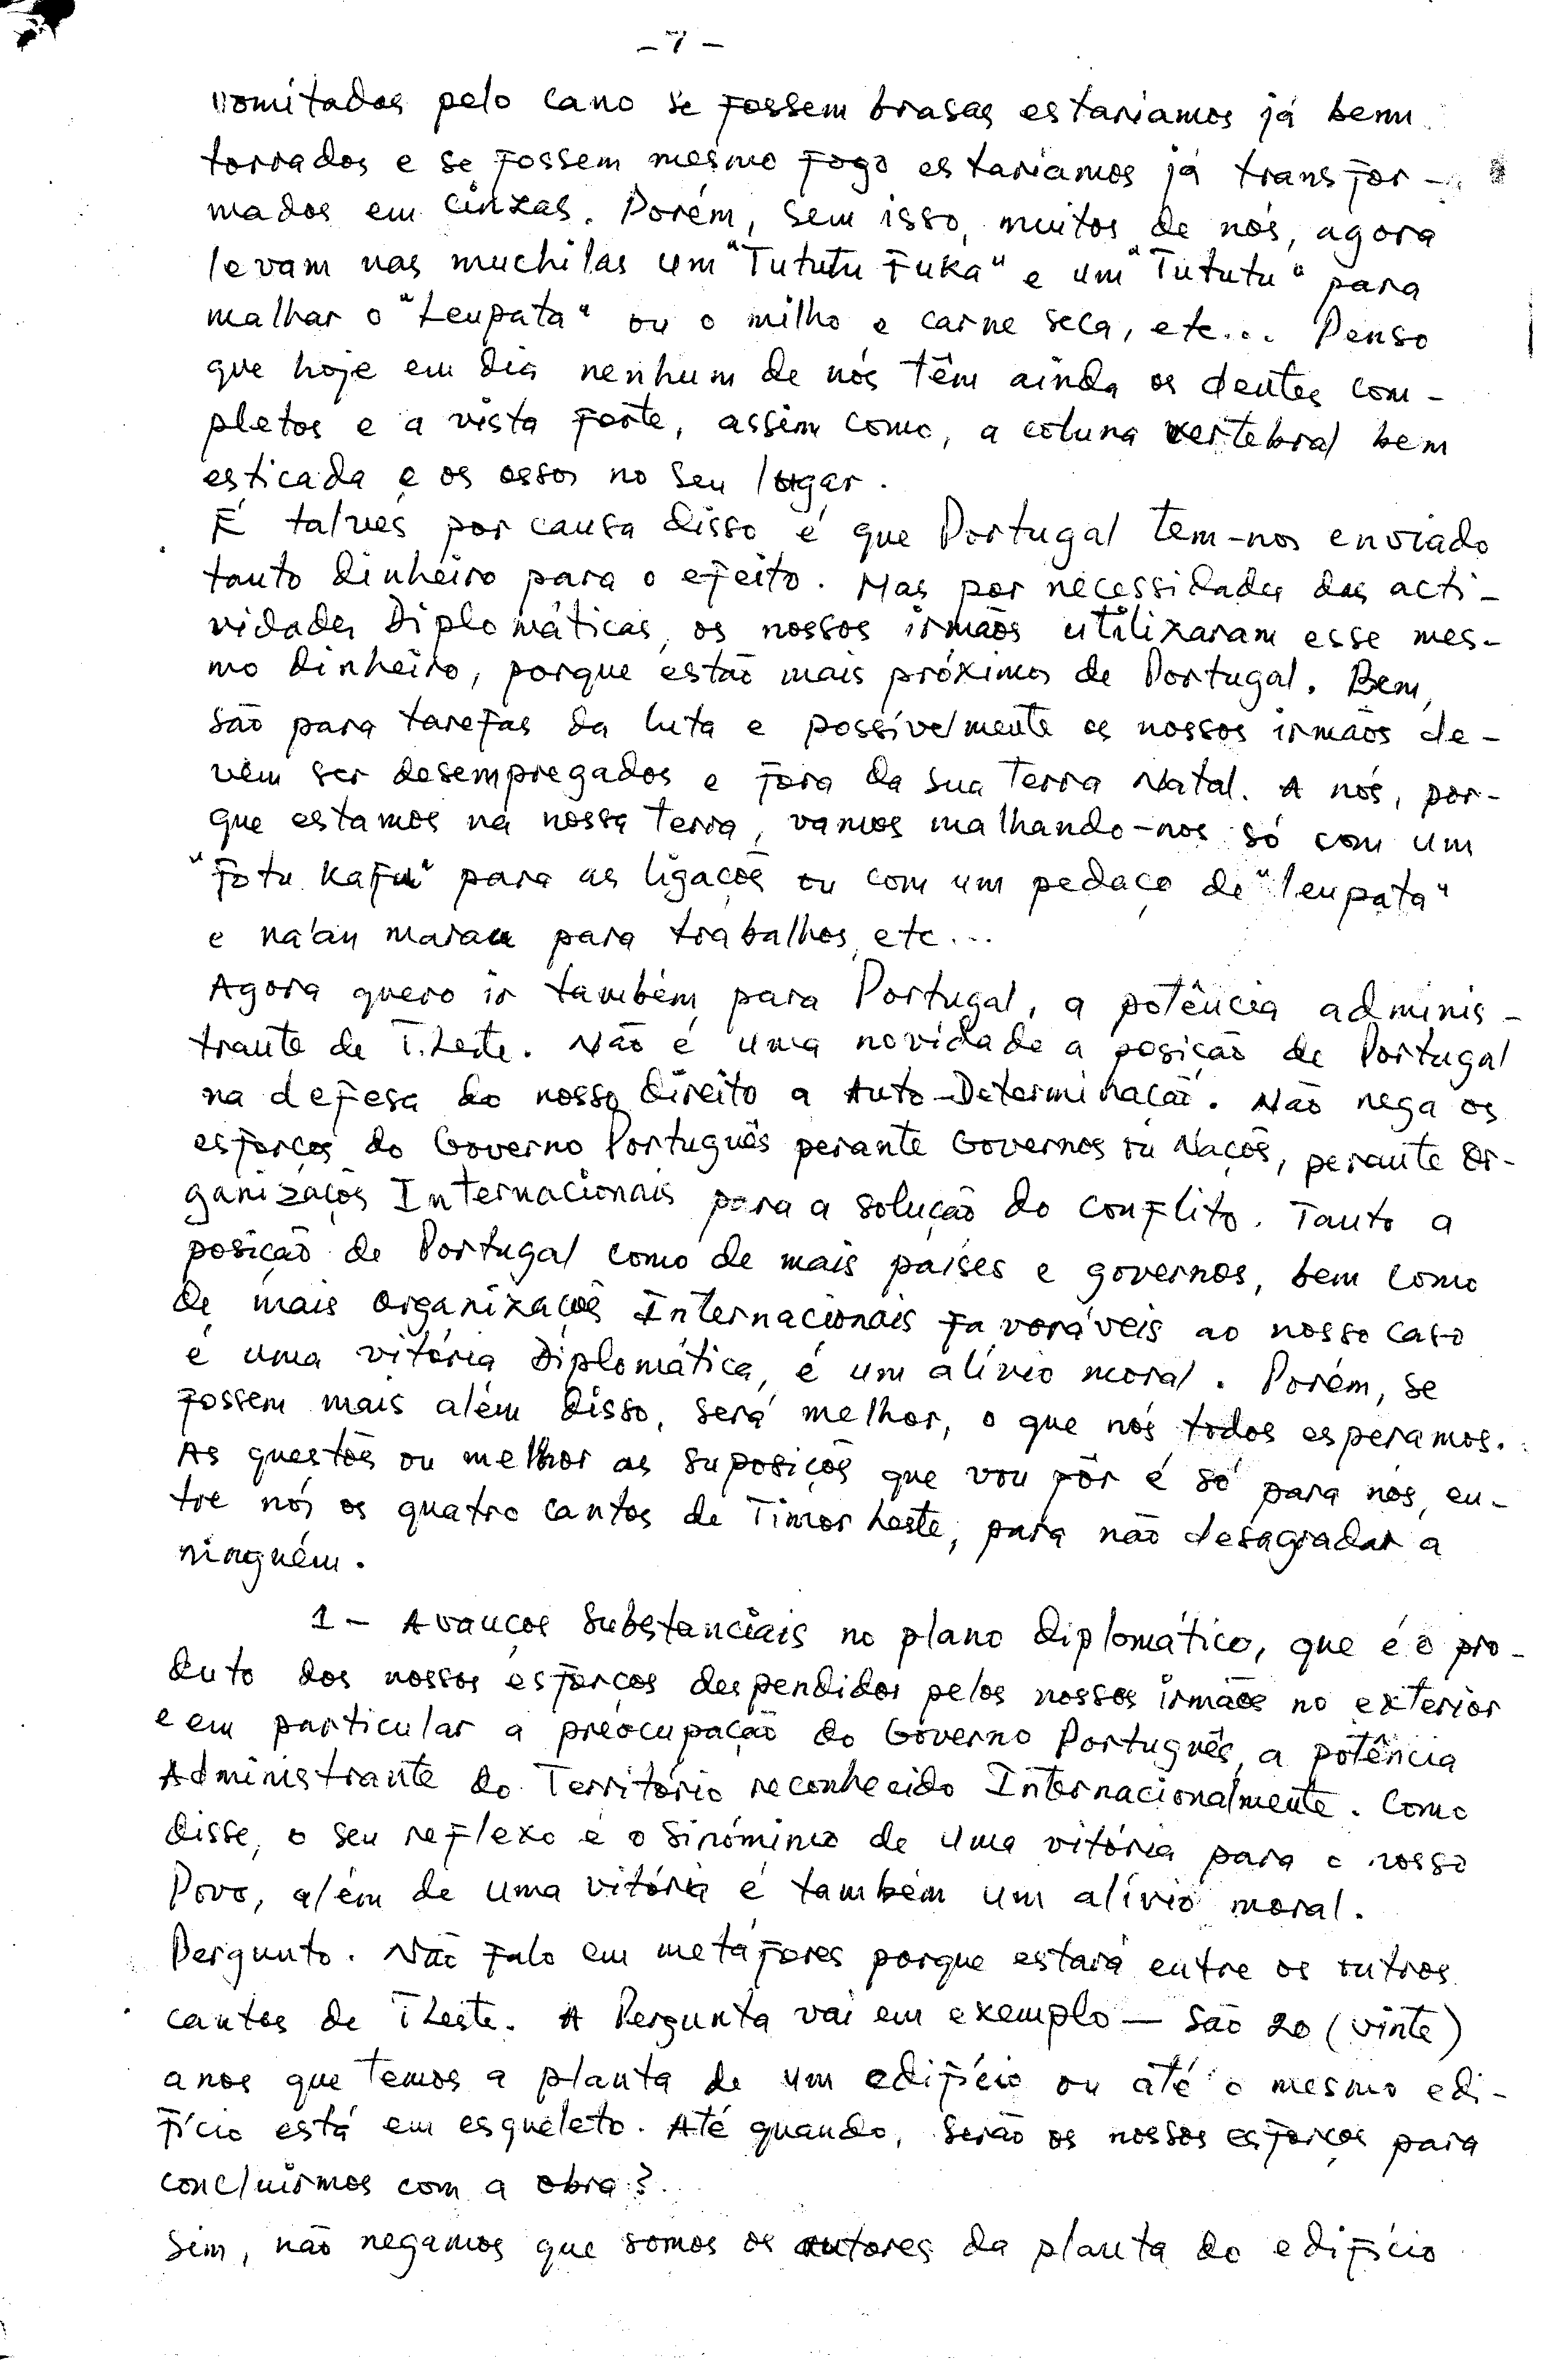 - 7 -
vomitados pelo cano se fossem brasas estariamos já bem
torrados e se fossem mesmo fogo estariamos já transfor-
mados em cinzas. Porém, sem isso, muitos de nós, agora
levam nas muchilas um "Tututu Fuka" e um "Tututu" para
malhar o "Leupata" ou o milho e carne seca, etc... Penso
que hoje em dia nenhum de nós têm ainda os dentes com-
pletos e a vista forte, assim como, a coluna vertebral bem
esticada e os ossos no seu lugar.
É talvés por causa disso é que Portugal tem-nos enviado
tanto dinheiro para o efeito. Mas por necessidades das acti-
vidades Diplomáticas, os nossos irmãos utilizaram esse mes-
mo dinheiro, porque estão mais próximos de Portugal. Bem,
são para tarefas da luta e possívelmente os nossos irmãos de-
vem ser desempregados e fora da sua Terra Natal. A nós, por-
que estamos na nossa terra, vamos malhando-nos só com um
"Fotu Kafu" para as ligaçõs ou com um pedaço de "leupata"
e na'an maran para trabalhos, etc...
Agora quero ir também para Portugal, a potência adminis-
trante de T. Leste. Não é uma novidade a posição de Portugal
na defesa do nosso direito a Auto-Determinação. Não nega os
esforços do Governo Português perante Governos ou Naçõs, perante Or-
ganizaçõs Internacionais para a solução do conflito. Tanto a
posição de Portugal como de mais países e governos, bem como
de mais organizaçõs Internacionais favoráveis ao nosso caso
é uma vitória Diplomática, é um alívio moral. Porém, se
fossem mais além disso, será melhor, o que nós todos esperamos.
As questõs ou melhor as suposiçõs que vou pôr é só para nós, en-
tre nós os quatro cantos de Timor Leste, para não desagradar a
ninguém.
1 - Avanços substanciais no plano diplomático, que é o pro-
duto dos nossos esforços despendidos pelos nossos irmãos no exterior
e em particular a preocupação do Governo Português, a potência
Administrante do Território reconhecido Internacionalmente. Como
disse, o seu reflexo é o sinóminio de uma vitória para o nosso
Povo, além de uma vitória é também um alívio moral.
Pergunto. Não falo em metáfores porque estará entre os outros
cantos de T Leste. A Pergunta vai em exemplo — São 20 (vinte)
anos que temos a planta de um edifício ou até o mesmo edi-
fício está em esqueleto. Até quando, serão os nossos esforços para
concluirmos com a obra?
Sim, não negamos que somos os autores da planta do edifício